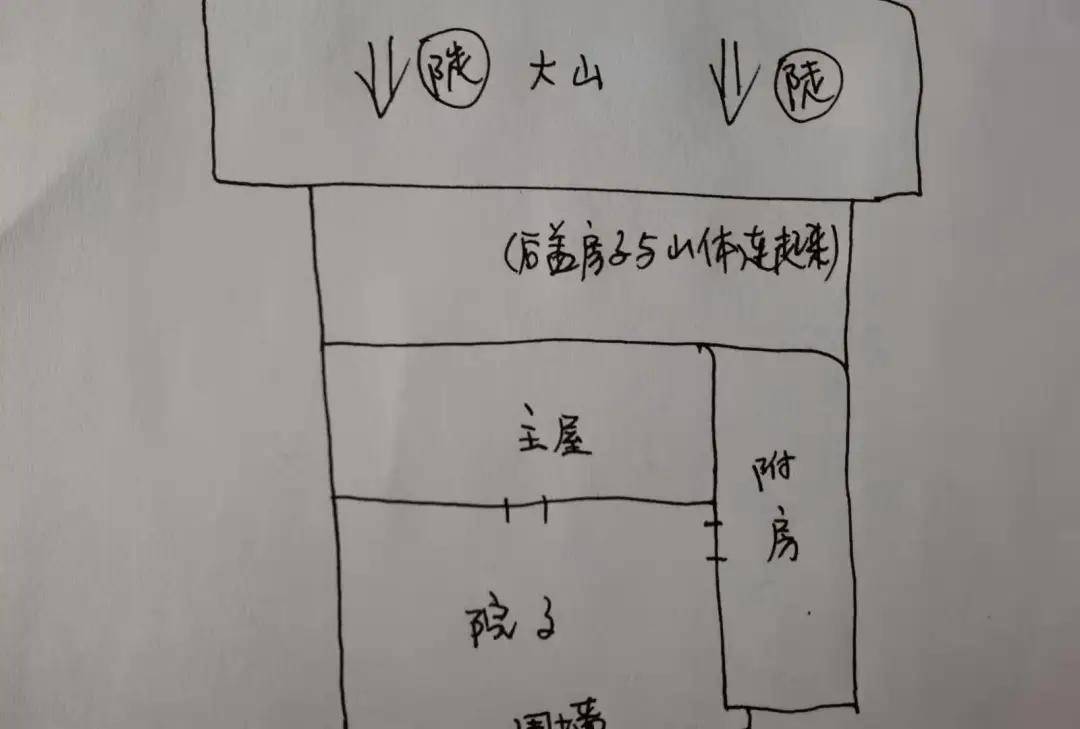 陡 大山 陡
(后盖房子与山体连起来)
主屋
附房
院子
围墙